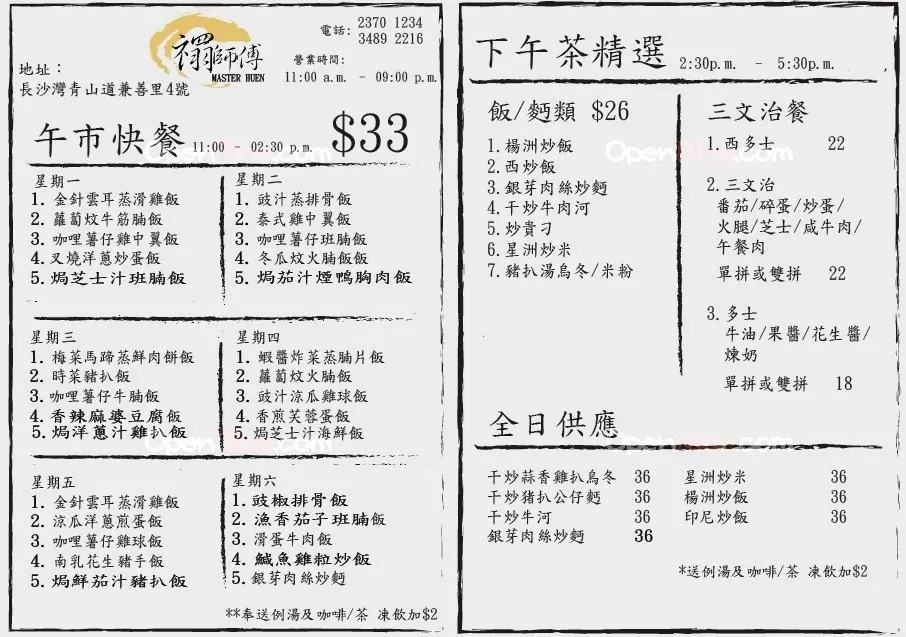 禤師傅
MASTER HUEN
電話: 2370 1234
3489 2216
營業時間:
11:00 a.m. - 09:00 p.m.
地址：
長沙灣青山道兼善里4號
午市快餐 11:00 - 02:30 p.m. $33
星期一
1. 金針雲耳蒸滑雞飯
2. 蘿蔔炆牛筋腩飯
3. 咖哩薯仔雞中翼飯
4. 叉燒洋蔥炒蛋飯
5. 焗芝士汁班腩飯
星期二
1. 豉汁蒸排骨飯
2. 泰式雞中翼飯
3. 咖哩薯仔班腩飯
4. 冬瓜炆火腩飯飯
5. 焗茄汁煙鴨胸肉飯
星期三
1. 梅菜馬蹄蒸鮮肉餅飯
2. 時菜豬扒飯
3. 咖哩薯仔牛腩飯
4. 香辣麻婆豆腐飯
5. 焗洋蔥汁雞扒飯
星期四
1. 蝦醬炸菜蒸腩片飯
2. 蘿蔔炆火腩飯
3. 豉汁涼瓜雞球飯
4. 香煎芙蓉蛋飯
5. 焗芝士汁海鮮飯
星期五
1. 金針雲耳蒸滑雞飯
2. 涼瓜洋蔥煎蛋飯
3. 咖哩薯仔雞球飯
4. 南乳花生豬手飯
5. 焗鮮茄汁豬扒飯
星期六
1. 豉椒排骨飯
2. 漁香茄子班腩飯
3. 滑蛋牛肉飯
4. 鹹魚雞粒炒飯
5. 銀芽肉絲炒麵
**奉送例湯及咖啡/茶 凍飲加$2
下午茶精選 2:30p.m. - 5:30p.m.
飯/麵類 $26
1. 楊洲炒飯
2. 西炒飯
3. 銀芽肉絲炒麵
4. 干炒牛肉河
5. 炒貴刁
6. 星洲炒米
7. 豬扒湯烏冬/米粉
三文治餐
1. 西多士 22
2. 三文治
番茄/碎蛋/炒蛋/
火腿/芝士/咸牛肉/
午餐肉
單拼或雙拼 22
3. 多士
牛油/果醬/花生醬/
煉奶
單拼或雙拼 18
全日供應
干炒蒜香雞扒烏冬 36
干炒豬扒公仔麵 36
干炒牛河 36
銀芽肉絲炒麵 36
星洲炒米 36
楊洲炒飯 36
印尼炒飯 36
*送例湯及咖啡/茶 凍飲加$2